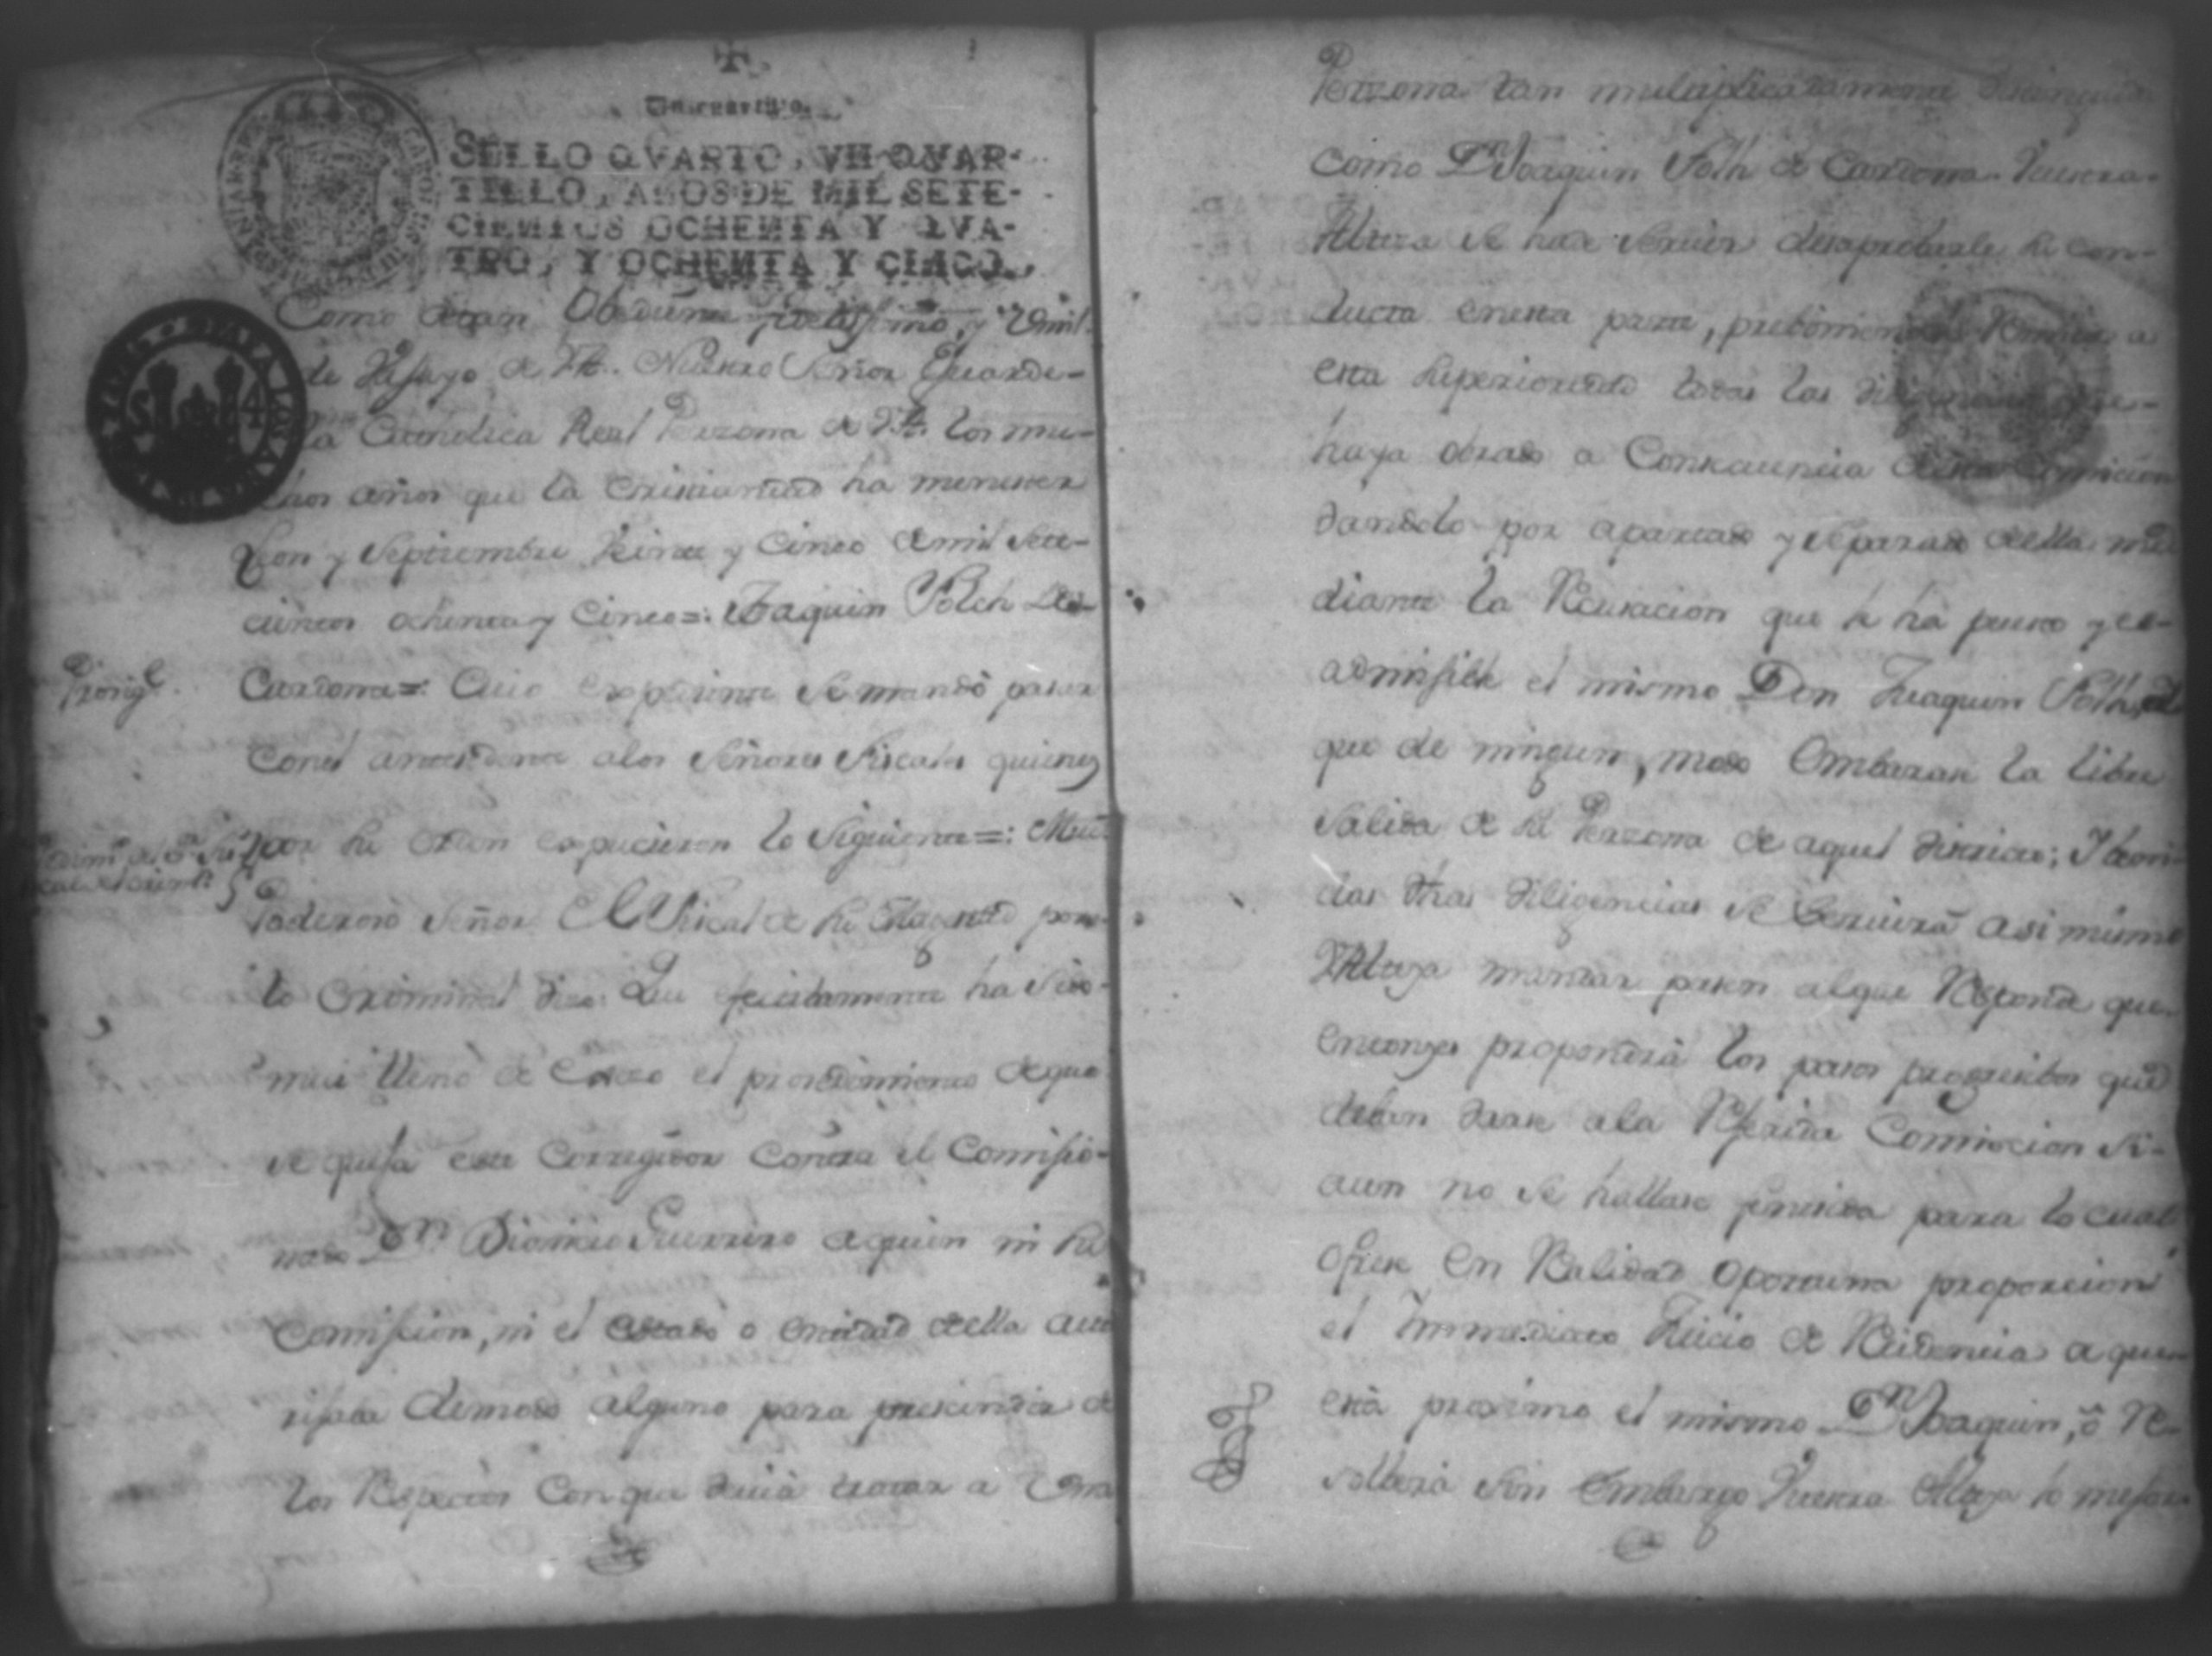 Un quartillo.
SELLO QVARTO, VN QVAR-
TILLO, AÑOS DE MIL SETE-
CIENTOS OCHENTA Y QVA-
TRO, Y OCHENTA Y CINCO.
Como gran fidelissimo, y Umil-
de Vasayo de VA. Nuestro Señor Guarde
la Catholica Real Perzona de VA. los mu-
chos años que la Cristiandad ha menester
Leon y Septiembre Veinte y Cinco de mil sete-
cientos ochenta y Cinco =: Joaquin Polch de
Cardona =: Cuio expediente se mandó pasar
Con el antesedente a los Señores Fiscales quienes
por su orden expucieron lo Siguiente =: Mui
Poderoso Señor El Fiscal de su Magestad por
lo Criminal dice: Que efectivamente ha sido
mui lleno de el procedimiento de que
se quexa este Corregidor Contra el Comisio-
nado Dn Dionicio Guerrero a quien ni su
Comission, ni el estado o entidad della auto
risaba de modo alguno para prescindir de
los Respectos Con que devia tratar a Una
Prosigue
Perzona tan multiplicadamente distinguida
Como Dn Joaquin Polh de Cardona. Vuestra
Alteza se ha de Servir desaprobarle su con-
ducta en esta parte, prebiniendole Remita a
esta Superioridad todas las diligencias que
haya obrado a Consecuencia de esta Comicion
dandolo por apartado y separado della me
diante la Recusacion que le ha puesto y es
admissible el mismo Don Juaquin Polh, y
que de ningun, modo Embarase la libre
Salida de su Perzona de aquel distrito; Y beni-
das dhas diligencias se Servirá asi mismo
VAlteza mandar pasen al que Responde que
entonzes propondrá los pasos progresibos que
deban darse a la Referida Comicion si
aun no se hallase fenecida para lo cual
ofrese en Realidad oportuna proporcion
el Immediato Juicio de Recidencia a que
está proximo el mismo Dn Joaquin, ó Re-
solberá sin embargo Vuestra Alteza lo mejor